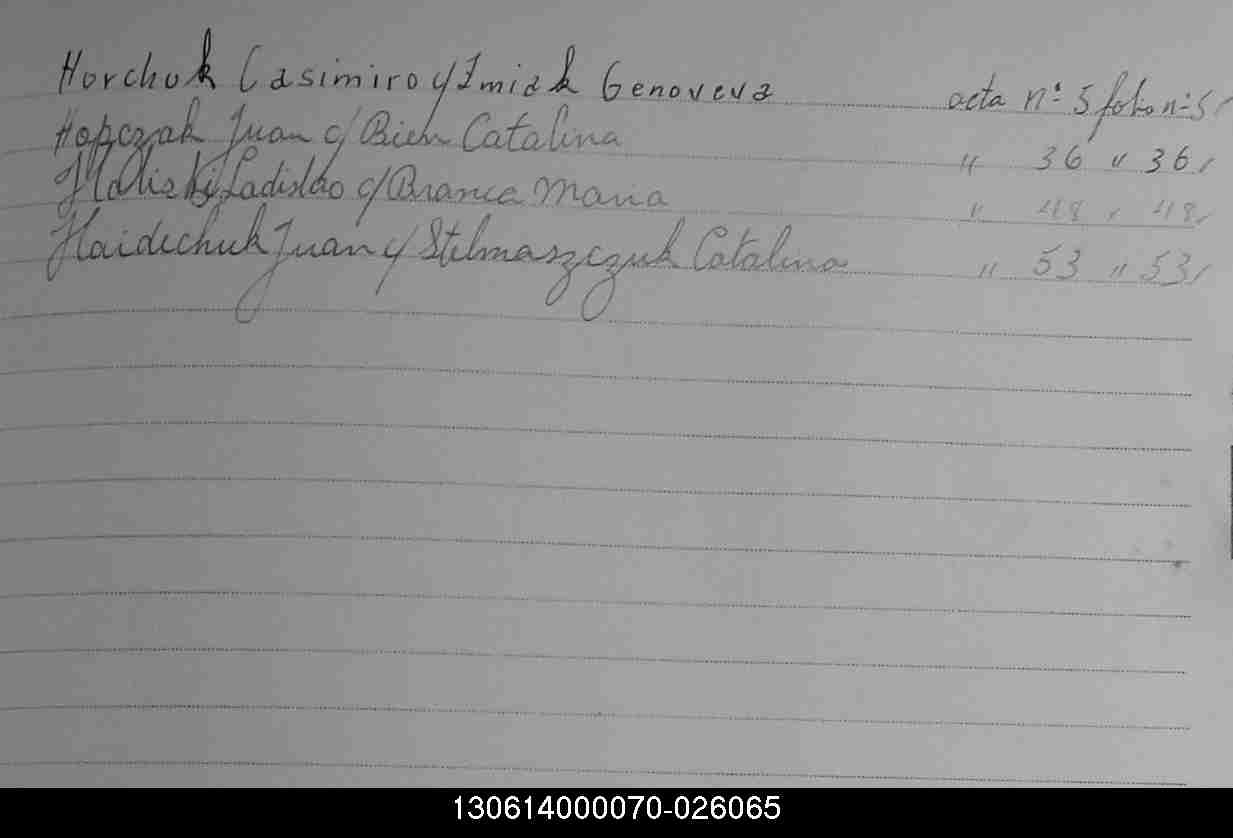 Horchuk Casimiro y Zmiak Genoveva acta nº 5 folio nº 5
Hopczak Juan c/ Bien Catalina " 36 " 36
Haliski Ladislao c/ Branca Maria " 48 " 48
Haidechuk Juan c/ Stelmaszczuk Catalina " 53 " 53
130614000070-026065